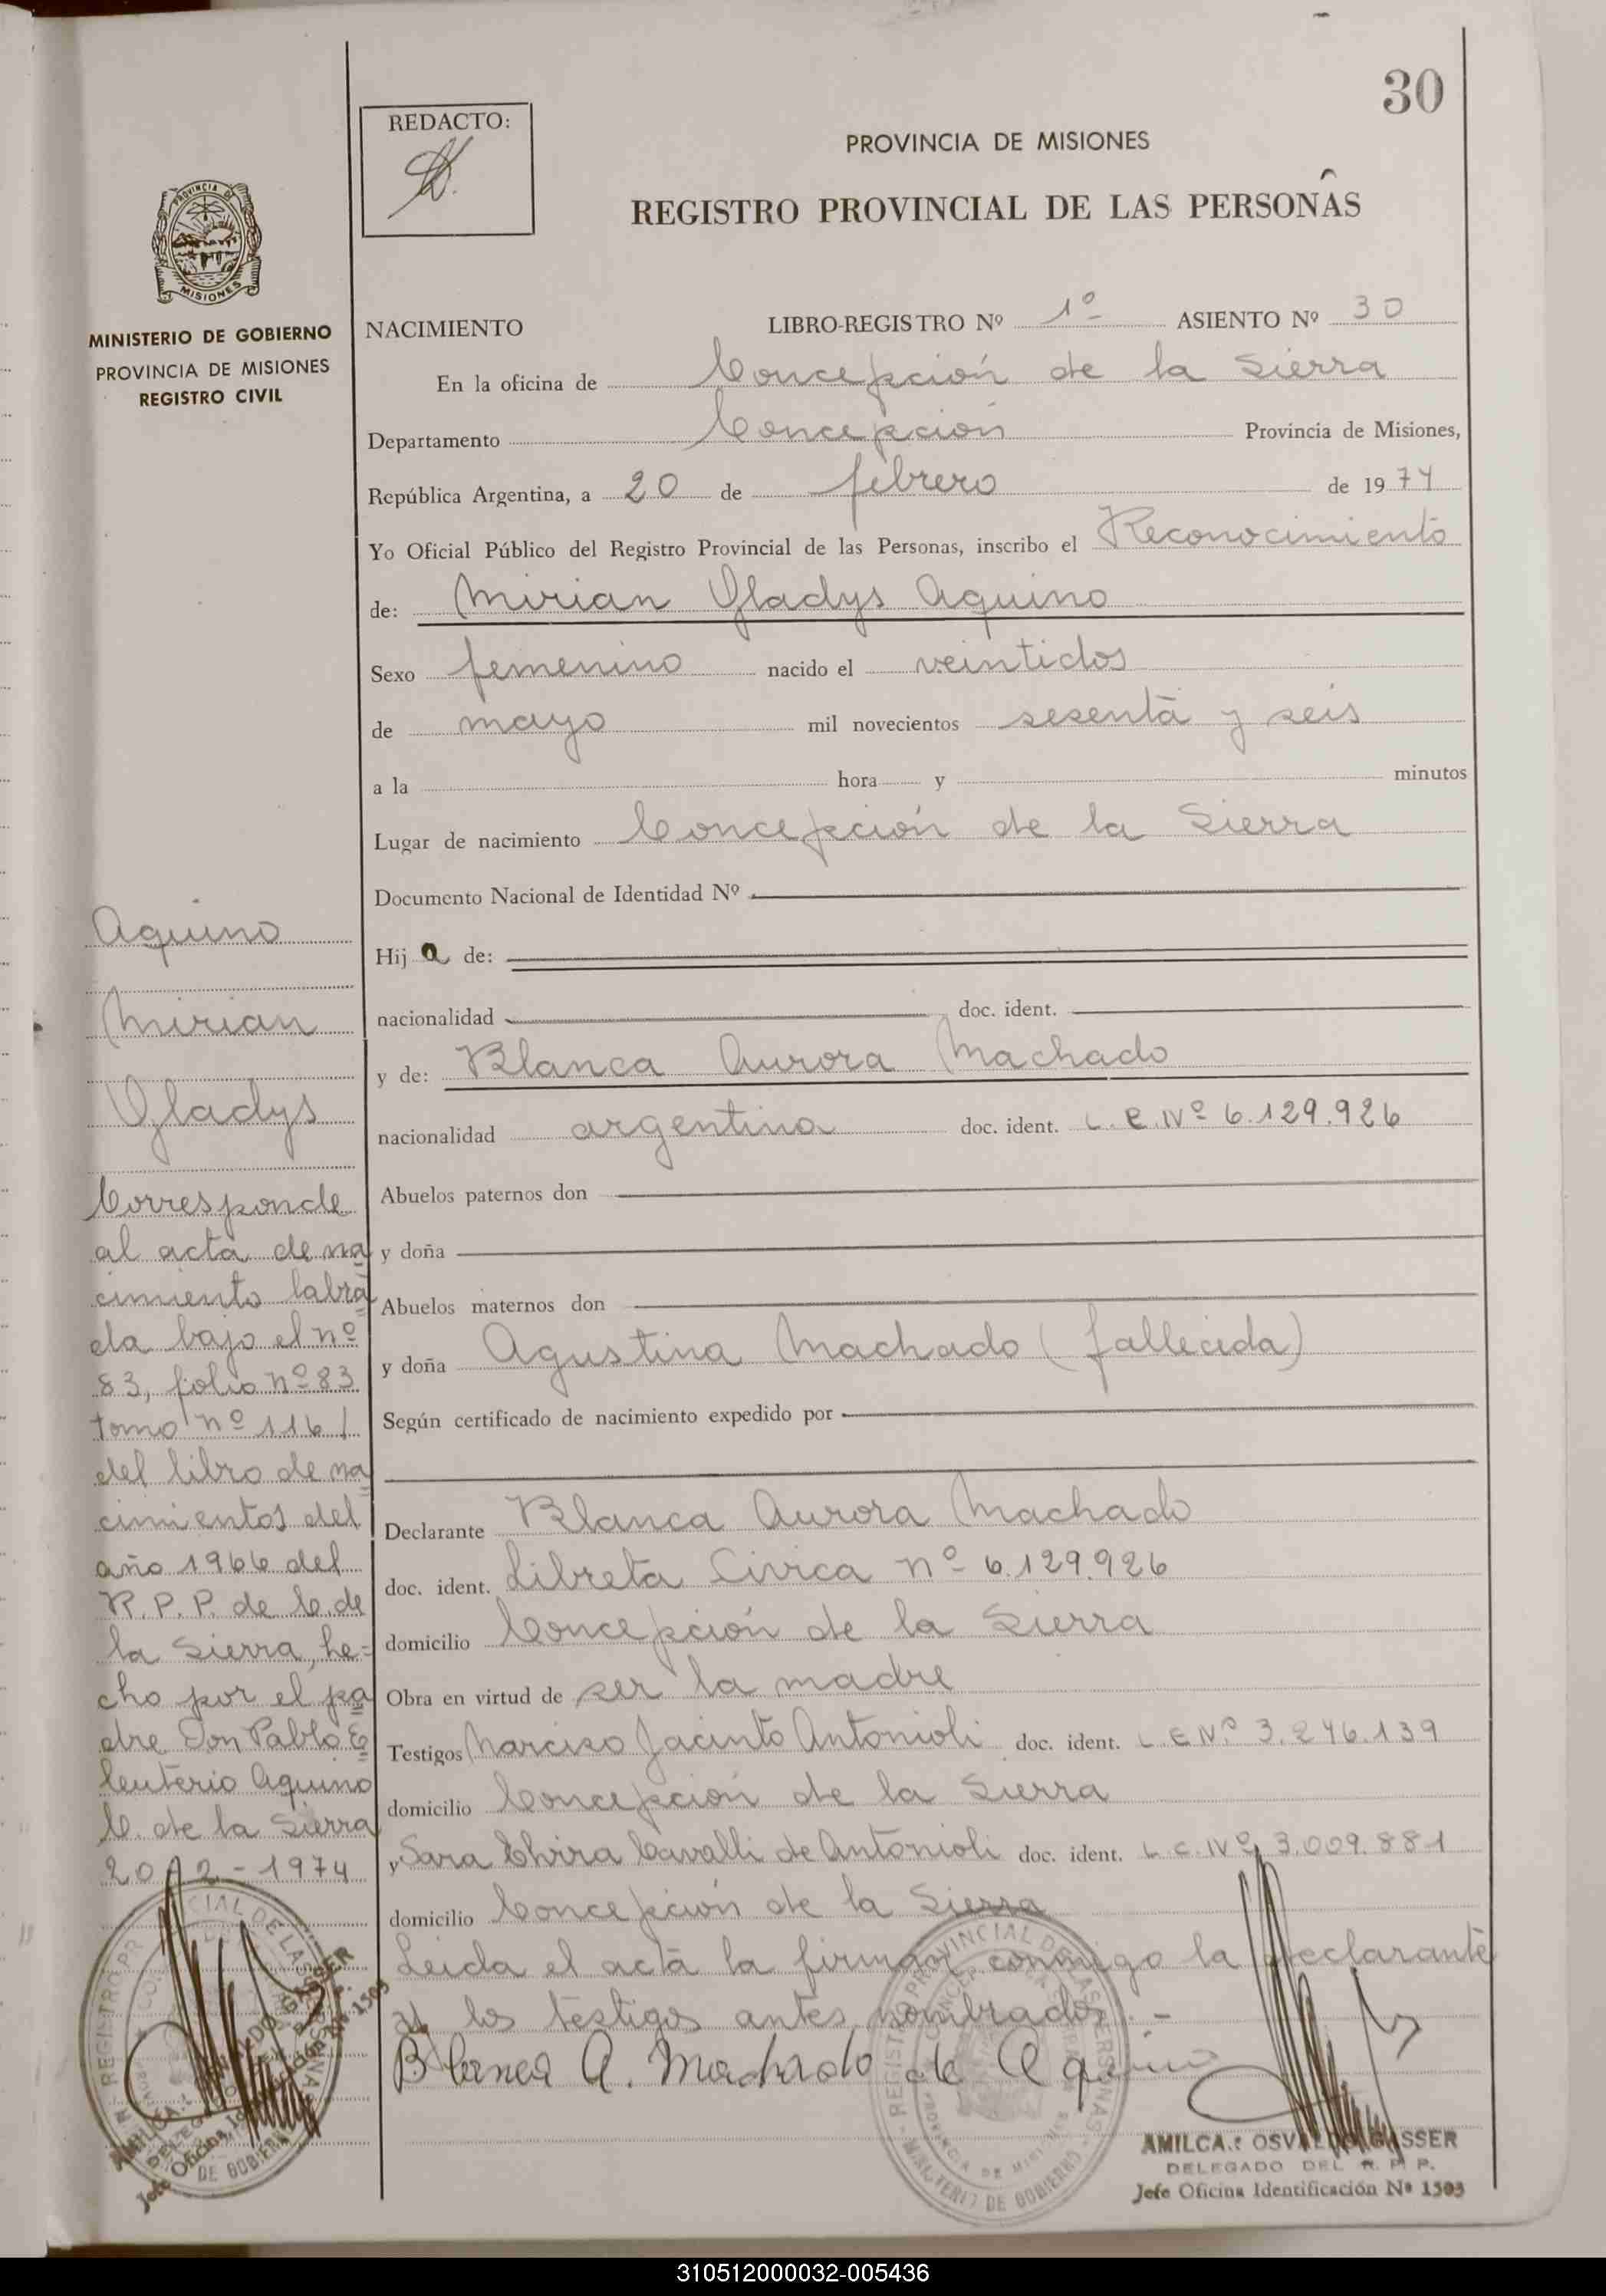 30
REDACTO:
PROVINCIA DE MISIONES
REGISTRO PROVINCIAL DE LAS PERSONAS
PROVINCIA DE
MISIONES
MINISTERIO DE GOBIERNO
PROVINCIA DE MISIONES
REGISTRO CIVIL
NACIMIENTO LIBRO-REGISTRO Nº 1º ASIENTO Nº 30
En la oficina de Concepción de la Sierra
Departamento Concepción Provincia de Misiones,
República Argentina, a 20 de febrero de 1974
Yo Oficial Público del Registro Provincial de las Personas, inscribo el Reconocimiento
de: Mirian Gladys Aquino
Sexo femenino nacido el veintidos
de mayo mil novecientos sesenta y seis
a la hora y minutos
Lugar de nacimiento Concepción de la Sierra
Documento Nacional de Identidad Nº
Hij a de:
nacionalidad doc. ident.
y de: Blanca Aurora Machado
nacionalidad argentina doc. ident. L.C.Nº 6.129.926
Abuelos paternos don
y doña
Abuelos maternos don
y doña Agustina Machado (fallecida)
Según certificado de nacimiento expedido por
Declarante Blanca Aurora Machado
doc. ident. Libreta Civica nº 6.129.926
domicilio Concepción de la Sierra
Obra en virtud de ser la madre
Testigos Narciso Jacinto Antonioli doc. ident. L.E.Nº 3.246.139
domicilio Concepción de la Sierra
y Sara Elvira Cavalli de Antonioli doc. ident. L.C.Nº 3.009.881
domicilio Concepción de la Sierra
Leida el acta la firman conmigo la declarante
y los testigos antes nombrados.-
Blanca A. Machado de Aquino
AMILCAR OSVALDO GASSER
DELEGADO DEL R. P. P.
Jefe Oficina Identificación Nº 1503
Aquino
Mirian
Gladys
Corresponde
al acta de na
cimiento labra
da bajo el nº
83, folio nº 83
tomo nº 116/
del libro de na
cimientos del
año 1966 del
R.P.P. de C. de
la Sierra, he-
cho por el pa
dre Don Pablo E
leuterio Aquino
C. de la Sierra
20-2-1974
AMILCAR OSVALDO GASSER
DELEGADO DEL R. P. P.
Jefe Oficina Identificación Nº 1503
310512000032-005436